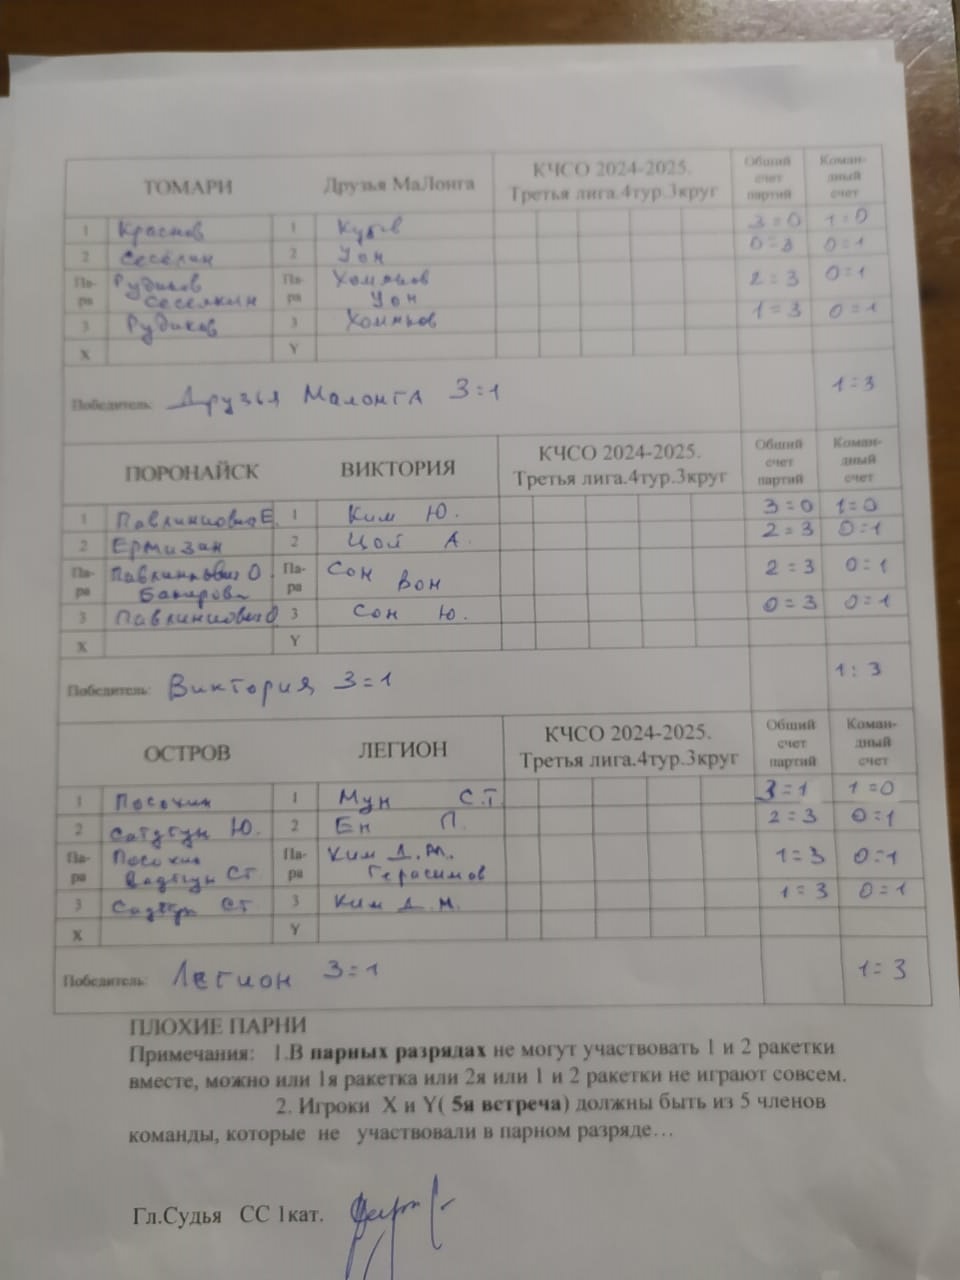 ТОМАРИ Друзья МаЛонга КЧСО 2024-2025. Третья лига.4тур.3круг Общий счет партий Коман-дный счет
1 Краснов 1 3=0 1=0
2 2 0=3 0=1
Па-ра Рудиков Па-ра Хомяков 2=3 0=1
3 Рудиков 3 Хомяков 1=3 0=1
X Y
Победитель: Друзья Малонга 3=1 1=3
ПОРОНАЙСК ВИКТОРИЯ КЧСО 2024-2025. Третья лига.4тур.3круг Общий счет партий Коман-дный счет
1 1 Ким Ю. 3=0 1=0
2 Ермизин 2 Цой А. 2=3 0=1
Па-ра Па-ра Сон Вон 2=3 0=1
3 3 Сон Ю. 0=3 0=1
X Y
Победитель: Виктория 3=1 1:3
ОСТРОВ ЛЕГИОН КЧСО 2024-2025. Третья лига.4тур.3круг Общий счет партий Коман-дный счет
1 Посохин 1 Мун С.Т. 3=1 1=0
2 Ю. 2 Ен П. 2=3 0=1
Па-ра Посохин СТ Па-ра Ким Д.М. Герасимов 1=3 0=1
3 СТ 3 Ким Д.М. 1=3 0=1
X Y
Победитель: Легион 3=1 1=3
ПЛОХИЕ ПАРНИ
Примечания: 1.В парных разрядах не могут участвовать 1 и 2 ракетки
вместе, можно или 1я ракетка или 2я или 1 и 2 ракетки не играют совсем.
2. Игроки X и Y( 5я встреча) должны быть из 5 членов
команды, которые не участвовали в парном разряде…
Гл.Судья СС 1кат.